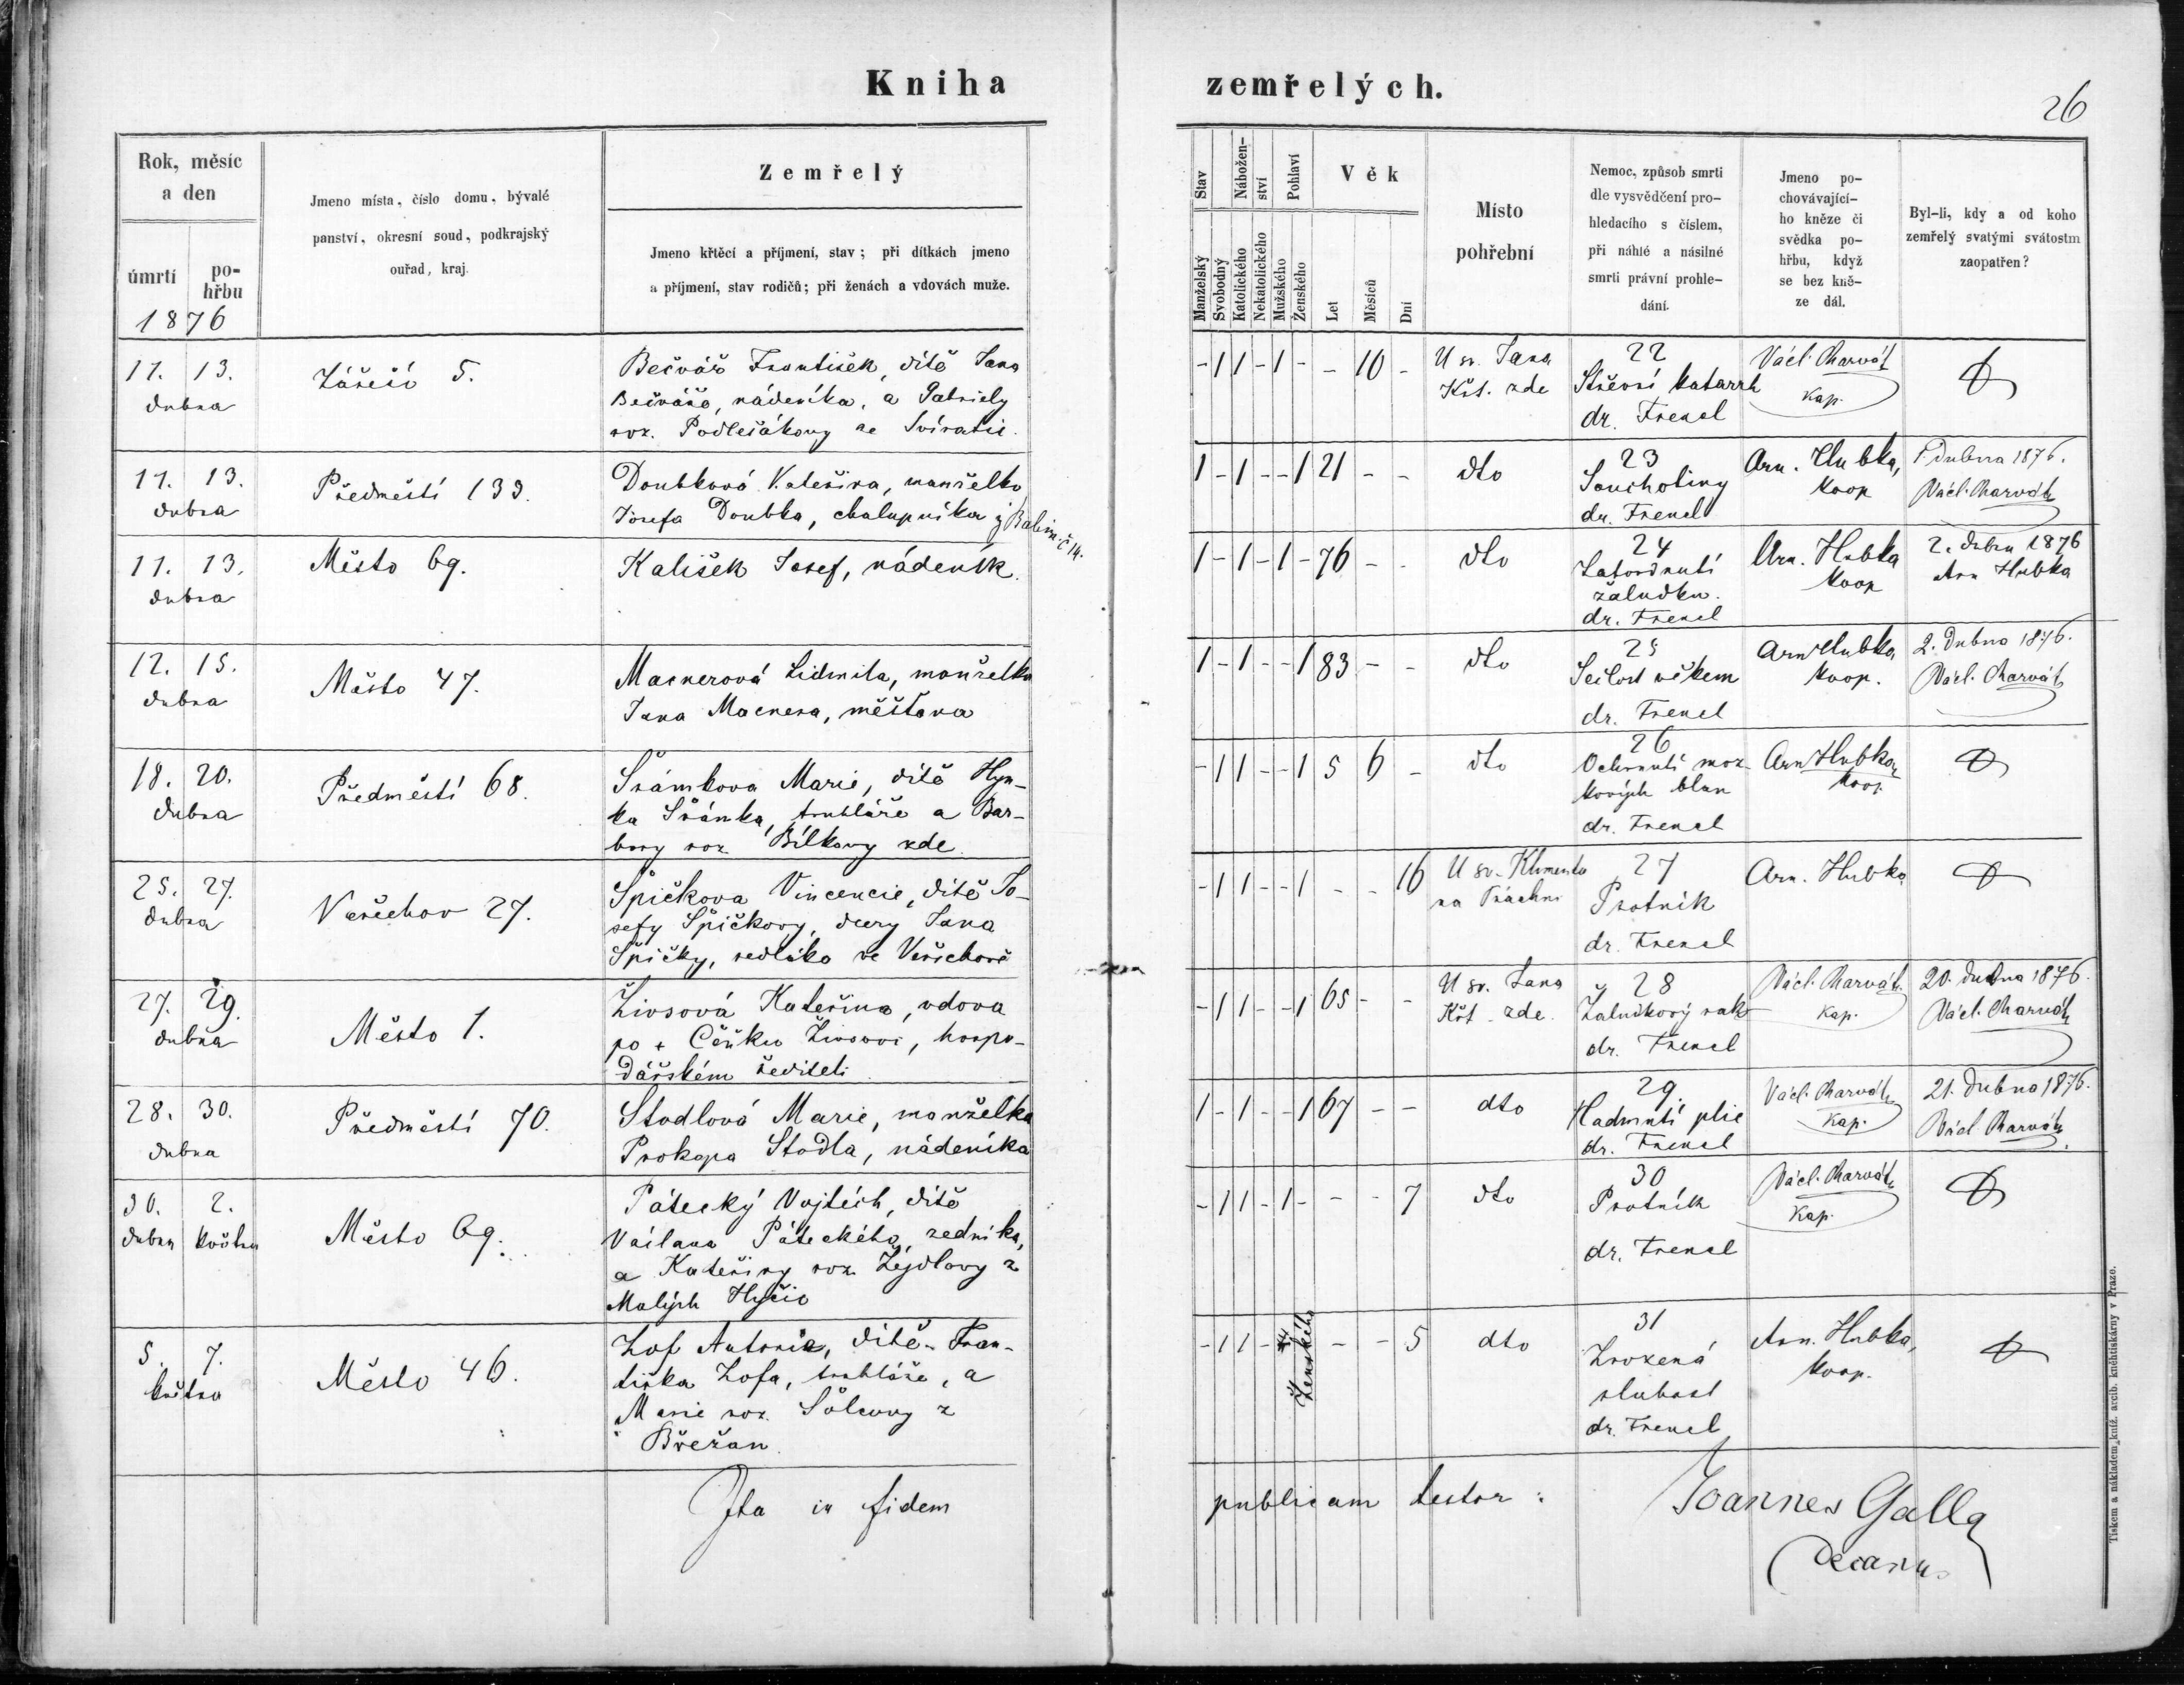 Kniha zemřelých.
26
Rok, měsíc
a den
úmrtí
po-
hřbu
1876
Jmeno místa, číslo domu, bývalé
panství, okresní soud, podkrajský
ouřad, kraj.
Zemřelý
Jmeno křtěcí a příjmení, stav; při dítkách jmeno
a příjmení, stav rodičů; při ženách a vdovách muže.
Stav
Nábožen-
ství
Pohlaví
Věk
Manželský
Svobodný
Katolického
Nekatolického
Mužského
Ženského
Let
Měsíců
Dní
Místo
pohřební
Nemoc, způsob smrti
dle vysvědčení pro-
hledacího s číslem,
při náhlé a násilné
smrti právní prohle-
dání.
Jmeno po-
chovávající-
ho kněze či
svědka po-
hřbu, když
se bez kně-
ze dál.
Byl-li, kdy a od koho
zemřelý svatými svátostm
zaopatřen?
11. 13.
dubna
5.
Bečvář František, dítě Jana
Bečváře, nádeníka, a Gabriely
roz. Podlešákovy ze
- 1 1 - 1 - - 10 -
U sv. Jana
Křt. zde
22
Střevní katarrh
dr. Frenzl
Václ. Charvát
kap.
11. 13.
dubna
Předměstí 133.
Doubková Kateřina, manželka
Josefa Doubka, chalupníka z Babin č 14.
1 - 1 - - 1 21 - -
dto
23
Souchotiny
dr. Frenzl
Arn. Hubka,
koop
1. Dubna 1876.
Václ. Charvát
11. 13.
dubna
Město 69.
Kališek Josef, nádeník.
1 - 1 - 1 - 76 - -
dto
24
Zatvrdnutí
žaludku.
dr. Frenzl
Arn. Hubka
koop
2. dubn 1876
Arn Hubka
12. 15.
dubna
Město 47.
Macnerová Lidmila, manželka
Jana Macnera, měšťana
1 - 1 - - 1 83 - -
dto
25
Sešlost věkem
dr. Frenzl
Arn Hubka
koop.
2. Dubna 1876.
Václ. Charvát
18. 20.
dubna
Předměstí 68.
Šrámkova Marie, dítě Hyn-
ka Šrámka, truhláře a Bar-
bory roz. Bílkovy zde.
- 1 1 - - 1 5 6 -
dto
26
Ochrnutí moz-
kových blan
dr. Frenzl
Arn Hubka
koop.
25. 27.
dubna
Vořechov 27.
Špičkova Vincencie, dítě Jo-
sefy Špičkovy, dcery Jana
Špičky, sedláka ve Vořechově
- 1 1 - - 1 - - 16
U sv. Klimenta
na Práchni
27
Psotník
dr. Frenzl
Arn. Hubka
27. 29.
dubna
Město 1.
Živsová Kateřina, vdova
po + Čeňku Živsovi, hospo-
dářském řediteli
- 1 1 - - 1 65 - -
U sv. Jana
Křt. zde.
28
Žaludkový rak
dr. Frenzl
Václ. Charvát
kap.
20. dubna 1876.
Václ. Charvát
28. 30.
dubna
Předměstí 70.
Stodlová Marie, manželka
Prokopa Stodla, nádeníka
1 - 1 - - 1 67 - -
dto
29.
Nadmutí plic
dr. Frenzl
Václ. Charvát
kap.
21. Dubna 1876.
Václ Charvát
30. 2.
dubna května
Město 69.
Pátecký Vojtěch, dítě
Páteckého, zedníka,
a Kateřiny roz. Zejdlovy z
Malých Hyčic
- 1 1 - 1 - - - 7
dto
30
Psotník
dr. Frenzl
Václ. Charvát
kap.
5. 7.
května
Město 46.
Zof Antonie, dítě Fran-
tiška Zofa, truhláře, a
Marie roz. Šůlcovy z
Břežan.
- 1 1 - Ženského - - 5
dto
31
Zrozená
slabost
dr. Frenzl
Arn. Hubka,
koop.
Ita in fidem publicam testor:
Joannes Galla
Decanus
Tiskem a nákladem kníž. arcib. knihtiskárny v Praze.